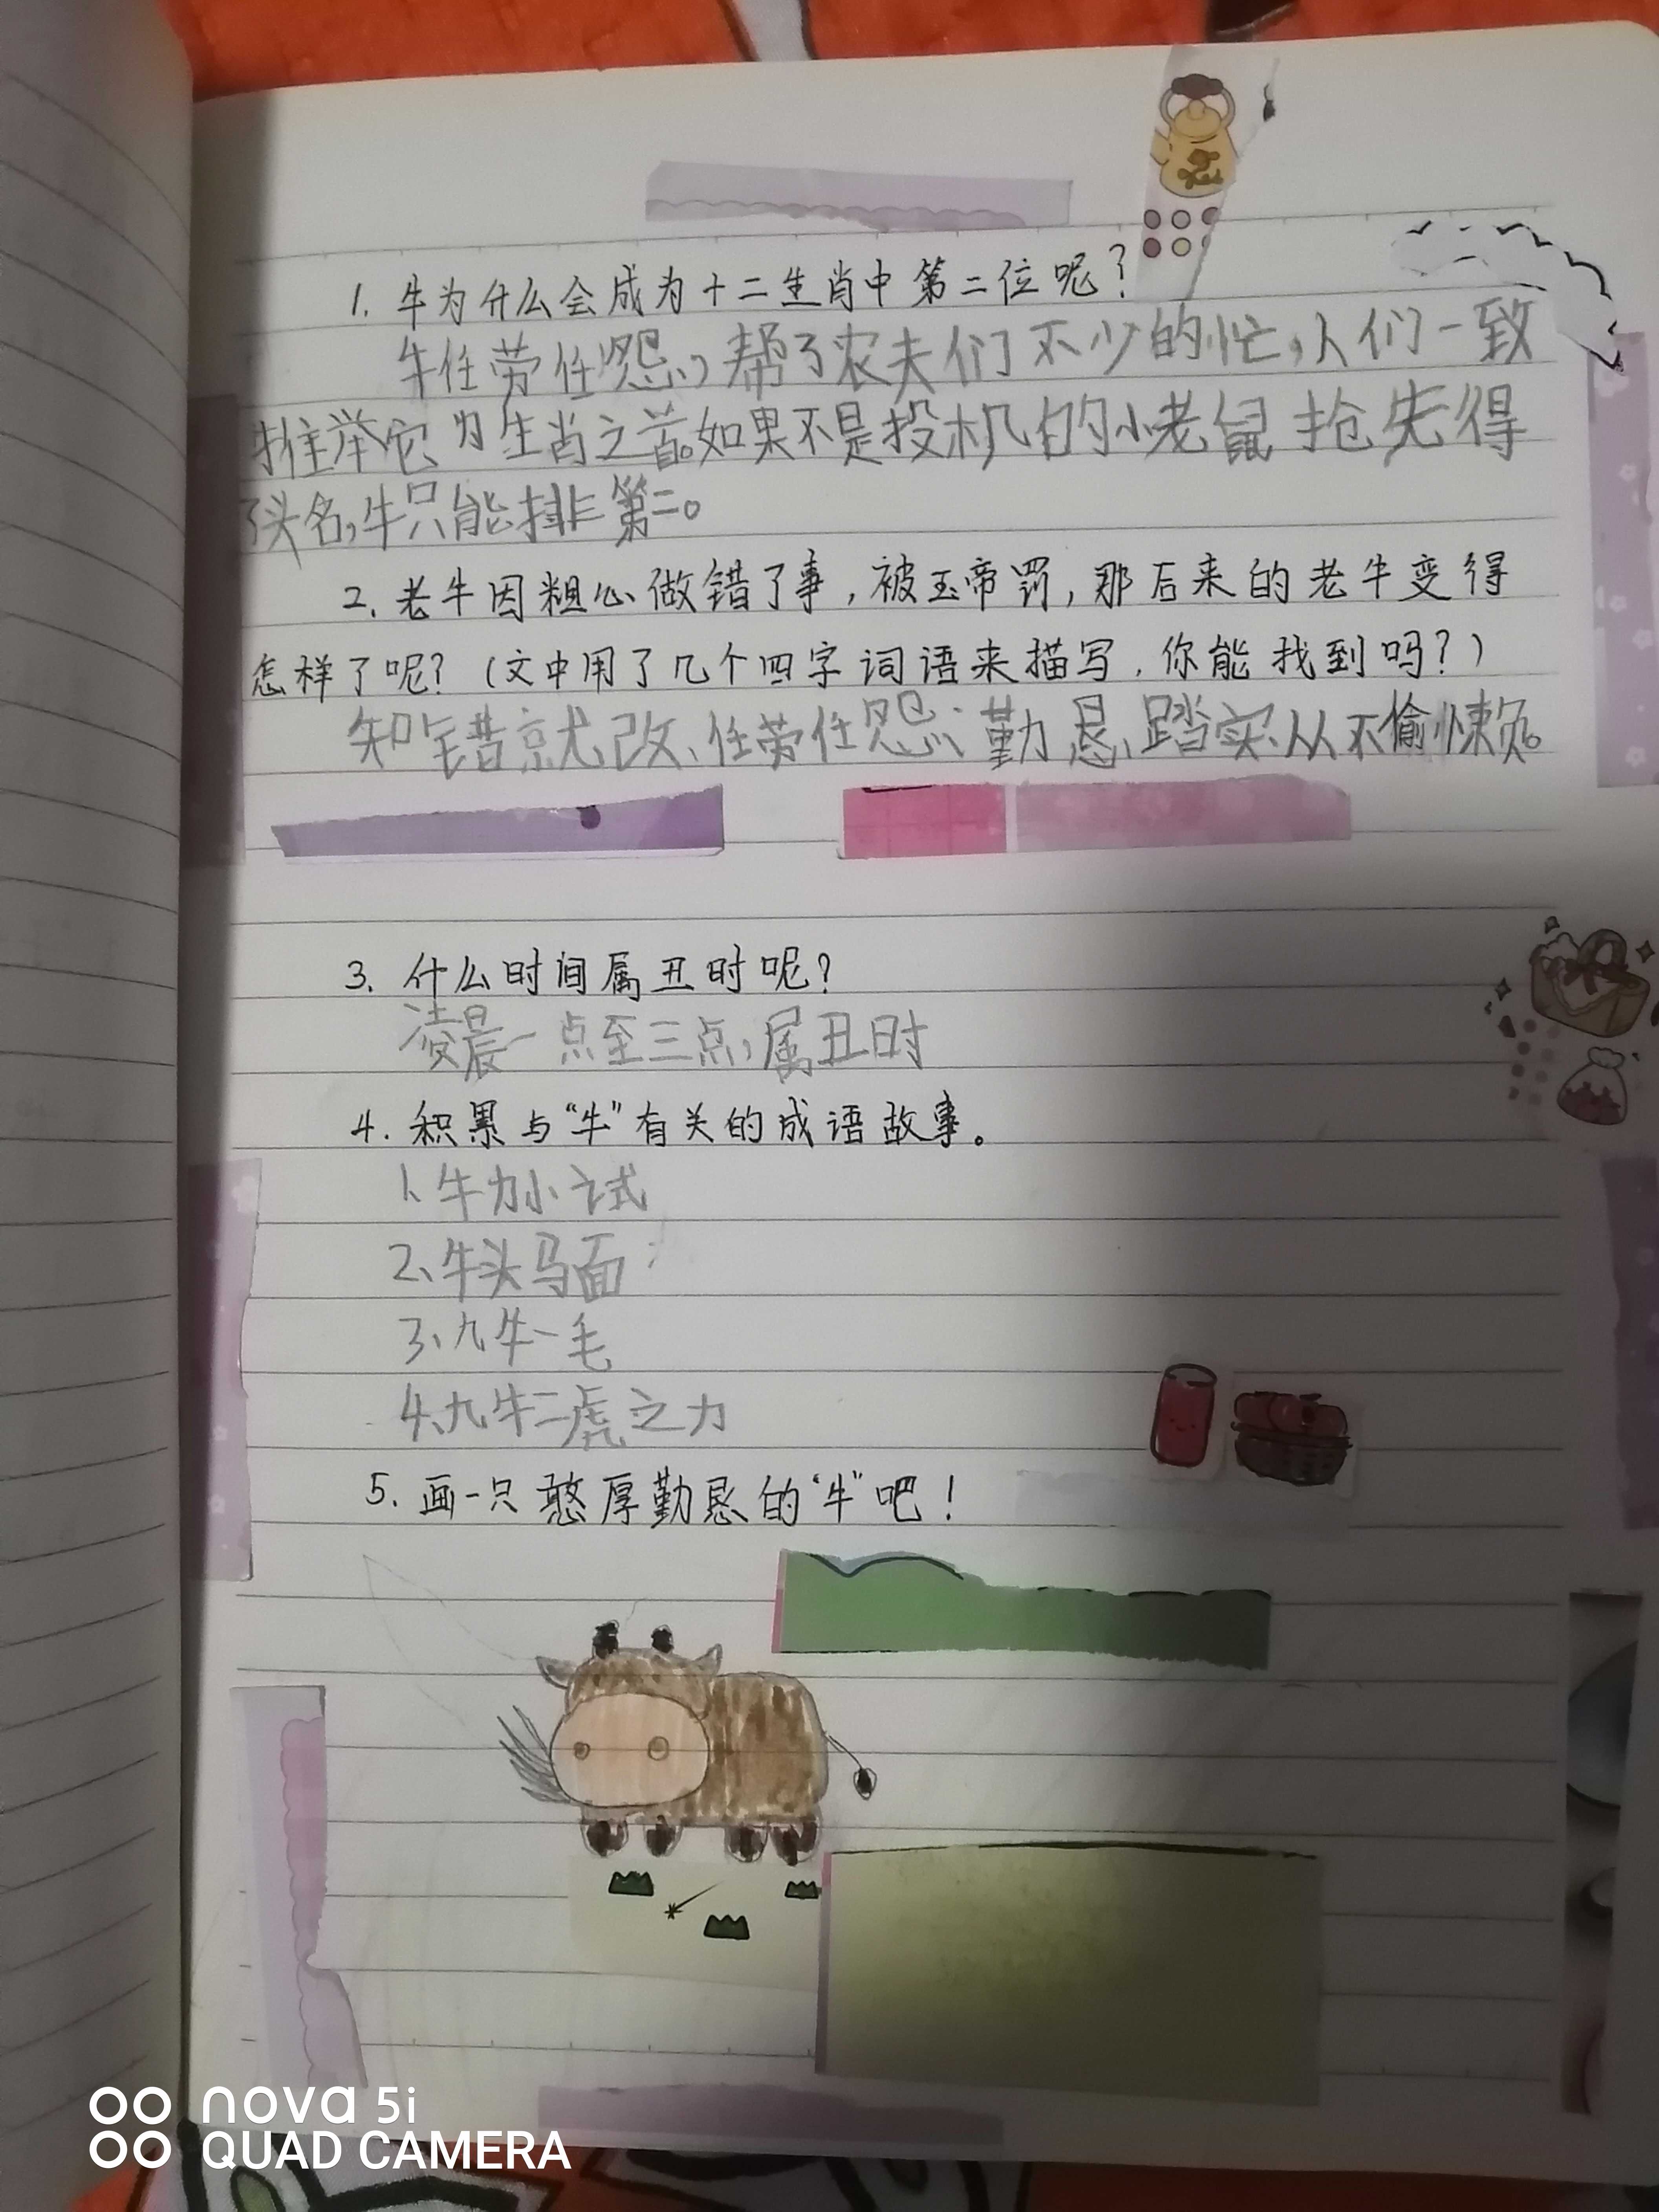 1. 牛为什么会成为十二生肖中第二位呢？
牛任劳任怨，帮了农夫们不少的忙，人们一致
推举它为生肖之首。如果不是投机的小老鼠抢先得
了头名，牛只能排第二。
2. 老牛因粗心做错了事，被玉帝罚，那后来的老牛变得
怎样了呢？（文中用了几个四字词语来描写，你能找到吗？）
知错就改、任劳任怨、勤恳、踏实、从不偷懒。
3. 什么时间属丑时呢？
凌晨一点至三点，属丑时
4. 积累与“牛”有关的成语故事。
1、牛力小试
2、牛头马面
3、九牛一毛
4、九牛二虎之力
5. 画一只憨厚勤恳的“牛”吧！
nova 5i
QUAD CAMERA